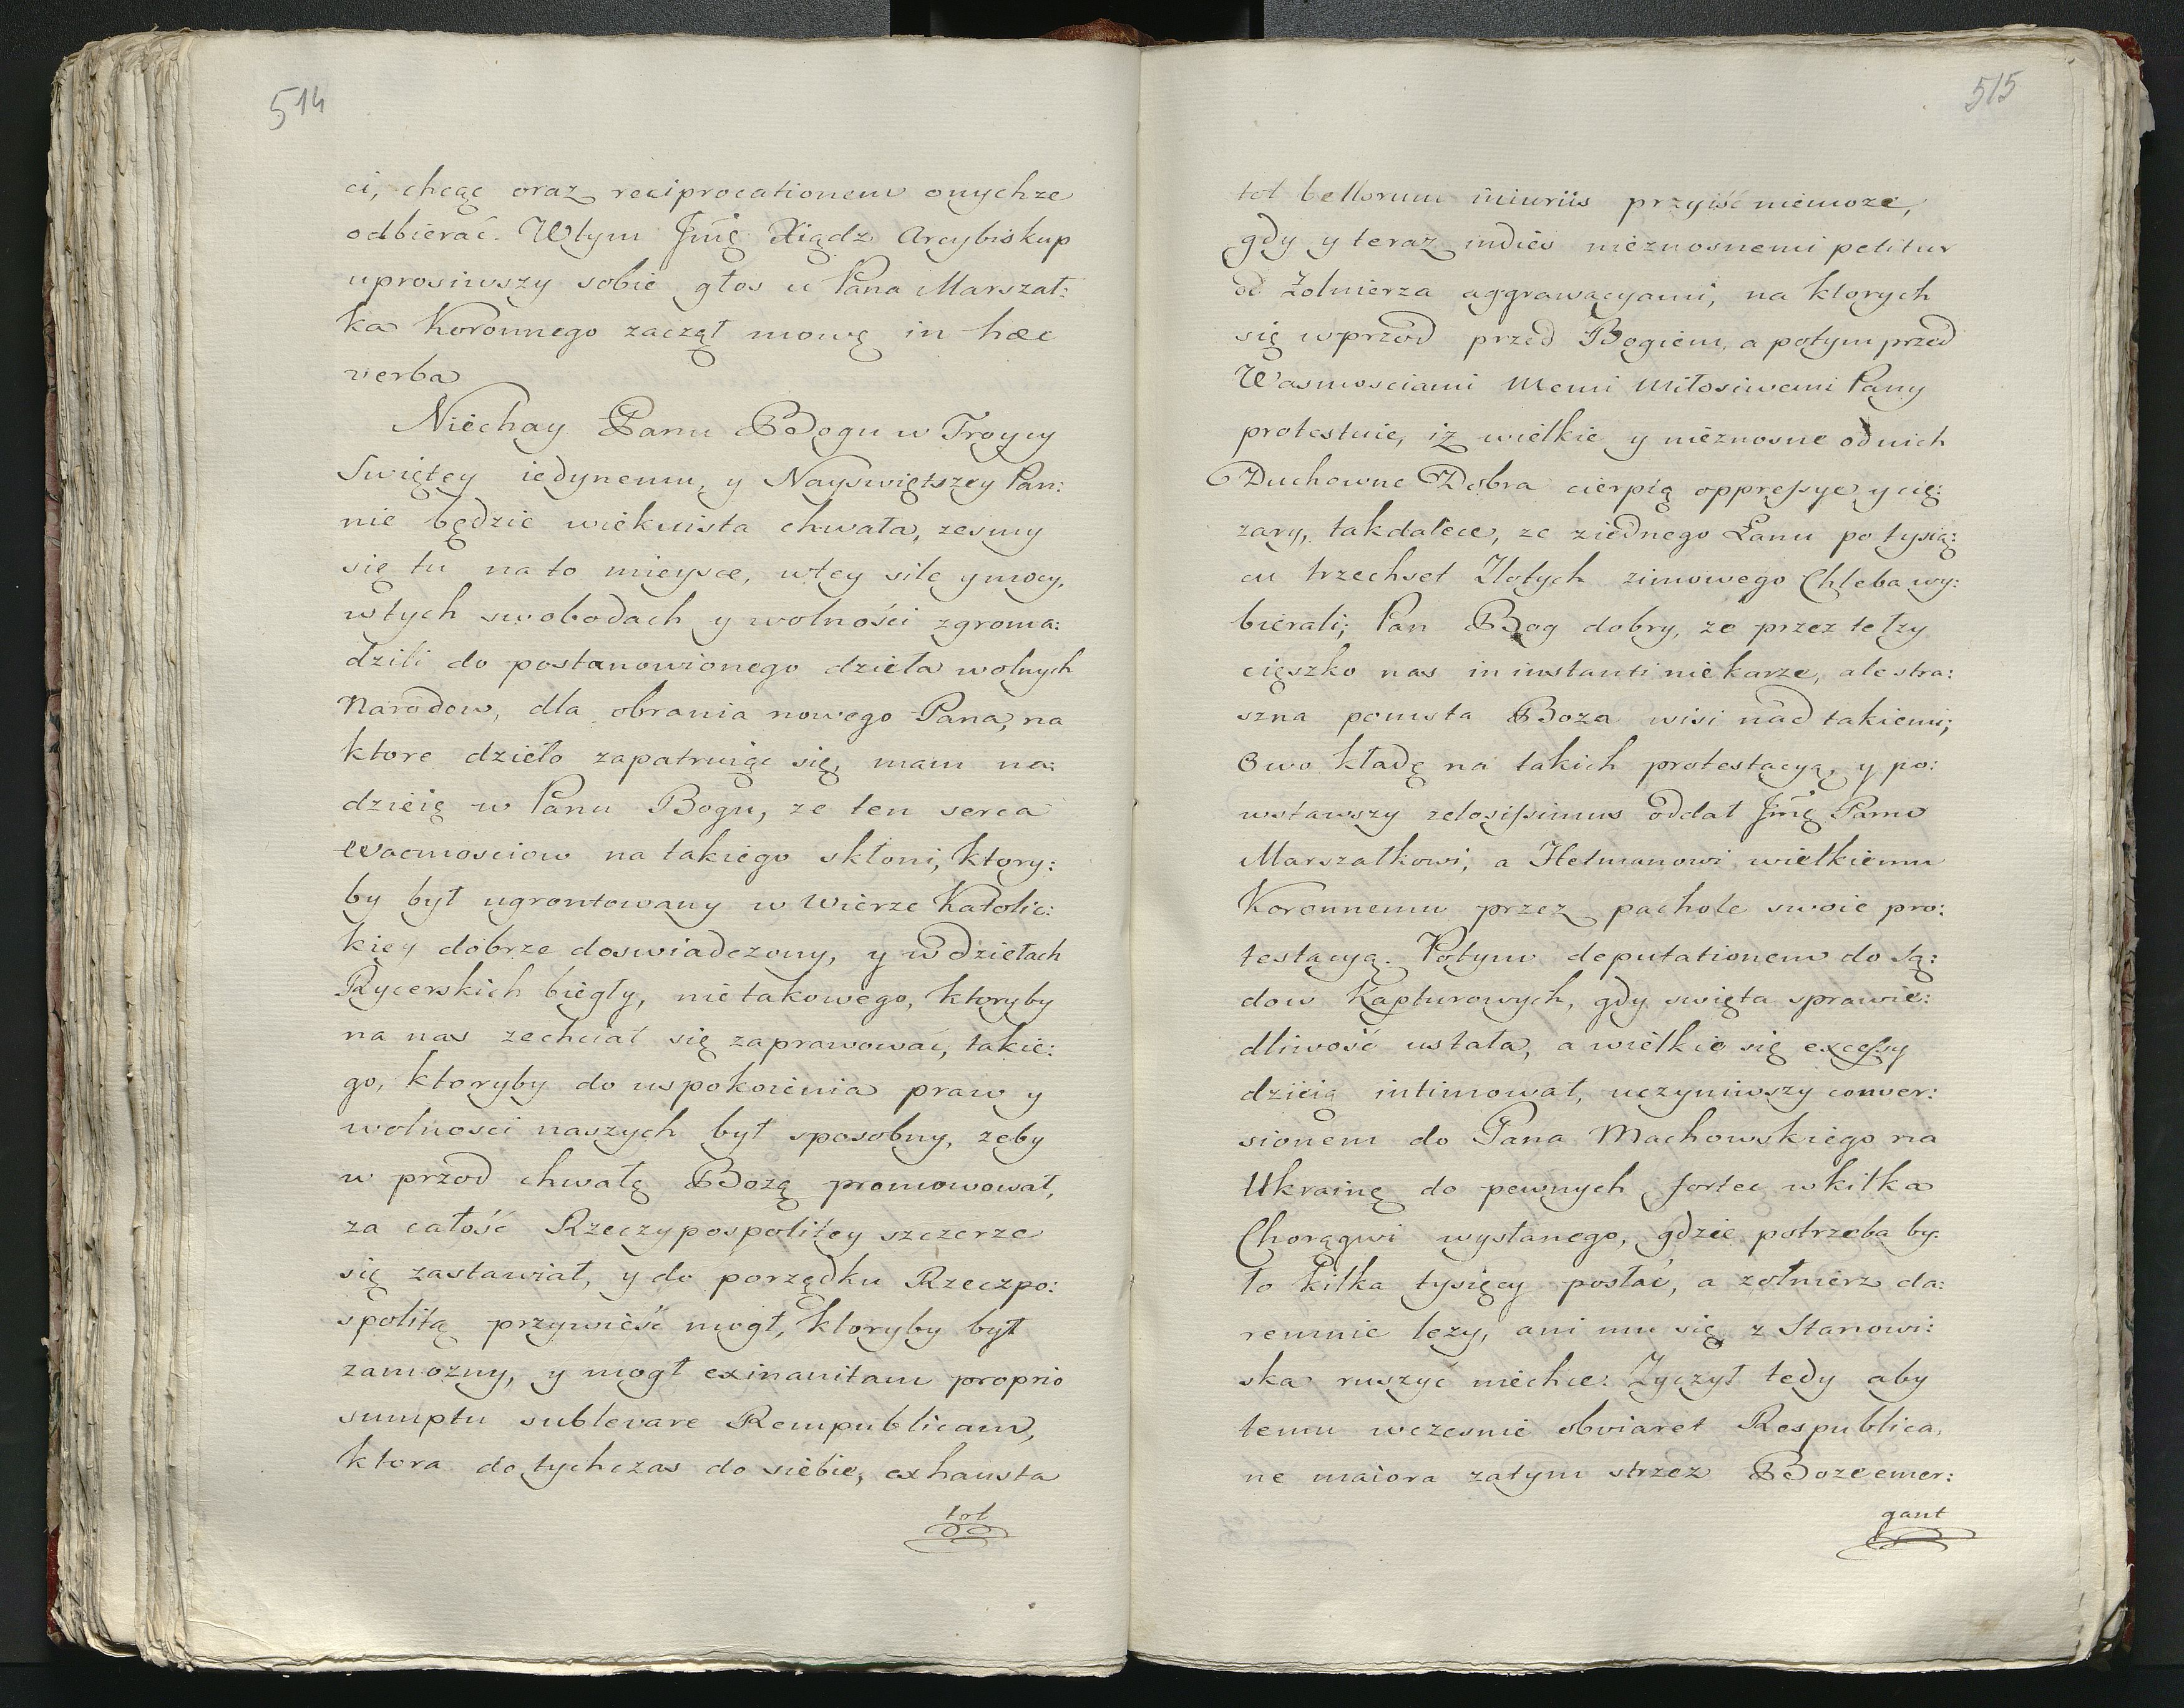 514
ci, chcąc oraz reciprocationem onychze
odbierać. Wtym Jmę Xiądz Arcybiskup
uprosiwszy sobie głos u Pana Marszał:
ka Koronnego zaczął mowę in hæc
verba
Niechay Panu Bogu w Troycy
Swiętey iedynemu, y Nayswiętszey Pan:
nie będzie wiekuista chwała, zesmy
się tu na to mieysce, wtey sile y mocy,
wtych swobodach y wolności zgroma:
dzili do postanowionego dzieła wolnych
Narodow, dla obrania nowego Pana, na
ktore dzieło zapatruiąc się, mam na:
dzieię w Panu Bogu, ze ten serca
Wacmosciow na takiego skłoni, ktory:
by był ugrontowany w Wierze Katolic:
kiey dobrze doswiadczony, y w dziełach
Rycerskich biegły, nie takowego, ktoryby
na nas zechciał się zaprawować, takie:
go, ktoryby do uspokoienia praw y
wolnosci naszych był sposobny, zeby
w przod chwałę Bozą promowował,
za całość Rzeczypospolitey szczerze
się zastawiał, y do porządku Rzeczpo:
spolitą przywieść mogł, ktoryby był
zamozny, y mogł exinanitam proprio
sumptu sublevare Rempublicam,
ktora do tychczas do siebie, exhausta
tot
515
tot bellorum iniuriis przyiść niemoze,
gdy y teraz indies nieznosnemi petitur
od Zolnierza aggrawacyami, na ktorych
się wprzod przed Bogiem, a potym przed
Wasmosciami Memi Miłosiwemi Pany
protestuie, iz wielkie y nieznosne od nich
Duchowne Dobra cierpią oppressye y cię:
zary, takdalece, ze ziednego Łanu po tysią:
cu trzechset Złotych zimowego Chleba wy:
bierali; Pan Bog dobry, ze przez te łzy
cięszko nas in instanti nie karze, ale stra:
szna pomsta Boza wisi nad takiemi;
Owo kładę na takich protestacyą, y po:
wstawszy zelosissimus oddał Jmę Panu
Marszałkowi, a Hetmanowi wielkiemu
Koronnemu przez pachole swoie pro:
testacyą. Potym deputationem do Są:
dow Kapturowych, gdy swięta sprawie:
dliwość ustała, a wielkie się excessy
dzieią intimował, uczyniwszy conver:
sionem do Pana Machowskiego na
Ukrainę do pewnych fortec w kilka
Chorągwi wysłanego, gdzie potrzeba by:
ło kilka tysięcy posłać, a zołnierz da:
remnie lezy, ani mu się z Stanowi:
ska ruszyć niechce. Zyczył tedy aby
temu wczesnie obviaret Respublica,
ne maiora zatym strzez Boze emer:
gant